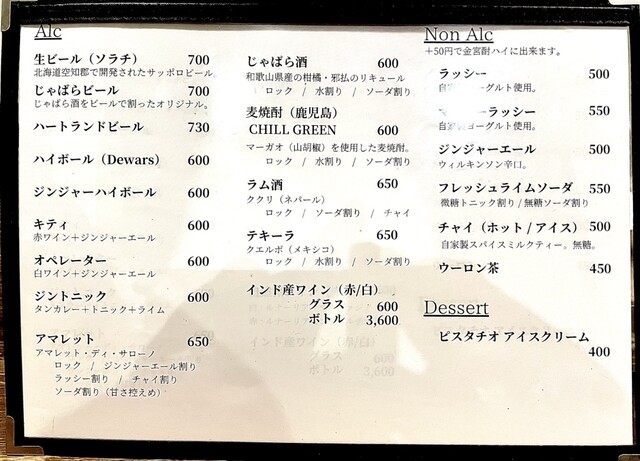 Alc
生ビール（ソラチ） 700
北海道空知郡で開発されたサッポロビール
じゃばらビール 700
じゃばら酒をビールで割ったオリジナル。
ハートランドビール 730
ハイボール（Dewars） 600
ジンジャーハイボール 600
キティ 600
赤ワイン＋ジンジャーエール
オペレーター 600
白ワイン＋ジンジャーエール
ジントニック 600
タンカレー＋トニック＋ライム
アマレット 650
アマレット・ディ・サローノ
ロック / ジンジャーエール割り
ラッシー割り / チャイ割り
ソーダ割り（甘さ控えめ）
じゃばら酒 600
和歌山県産の柑橘・邪払のリキュール
ロック / 水割り / ソーダ割り
麦焼酎（鹿児島）
CHILL GREEN 600
マーガオ（山胡椒）を使用した麦焼酎。
ロック / 水割り / ソーダ割り
ラム酒 650
ククリ（ネパール）
ロック / ソーダ割り / チャイ
テキーラ 650
クエルボ（メキシコ）
ロック / 水割り / ソーダ割り
インド産ワイン（赤/白）
グラス 600
ボトル 3,600
Non Alc
＋50円で金宮酎ハイに出来ます。
ラッシー 500
自家 ーグルト使用。
ーラッシー 550
自家 ヨーグルト使用。
ジンジャーエール 500
ウィルキンソン辛口。
フレッシュライムソーダ 550
微糖トニック割り / 無糖ソーダ割り
チャイ（ホット / アイス） 500
自家製スパイスミルクティー。無糖。
ウーロン茶 450
Dessert
ピスタチオ アイスクリーム
400